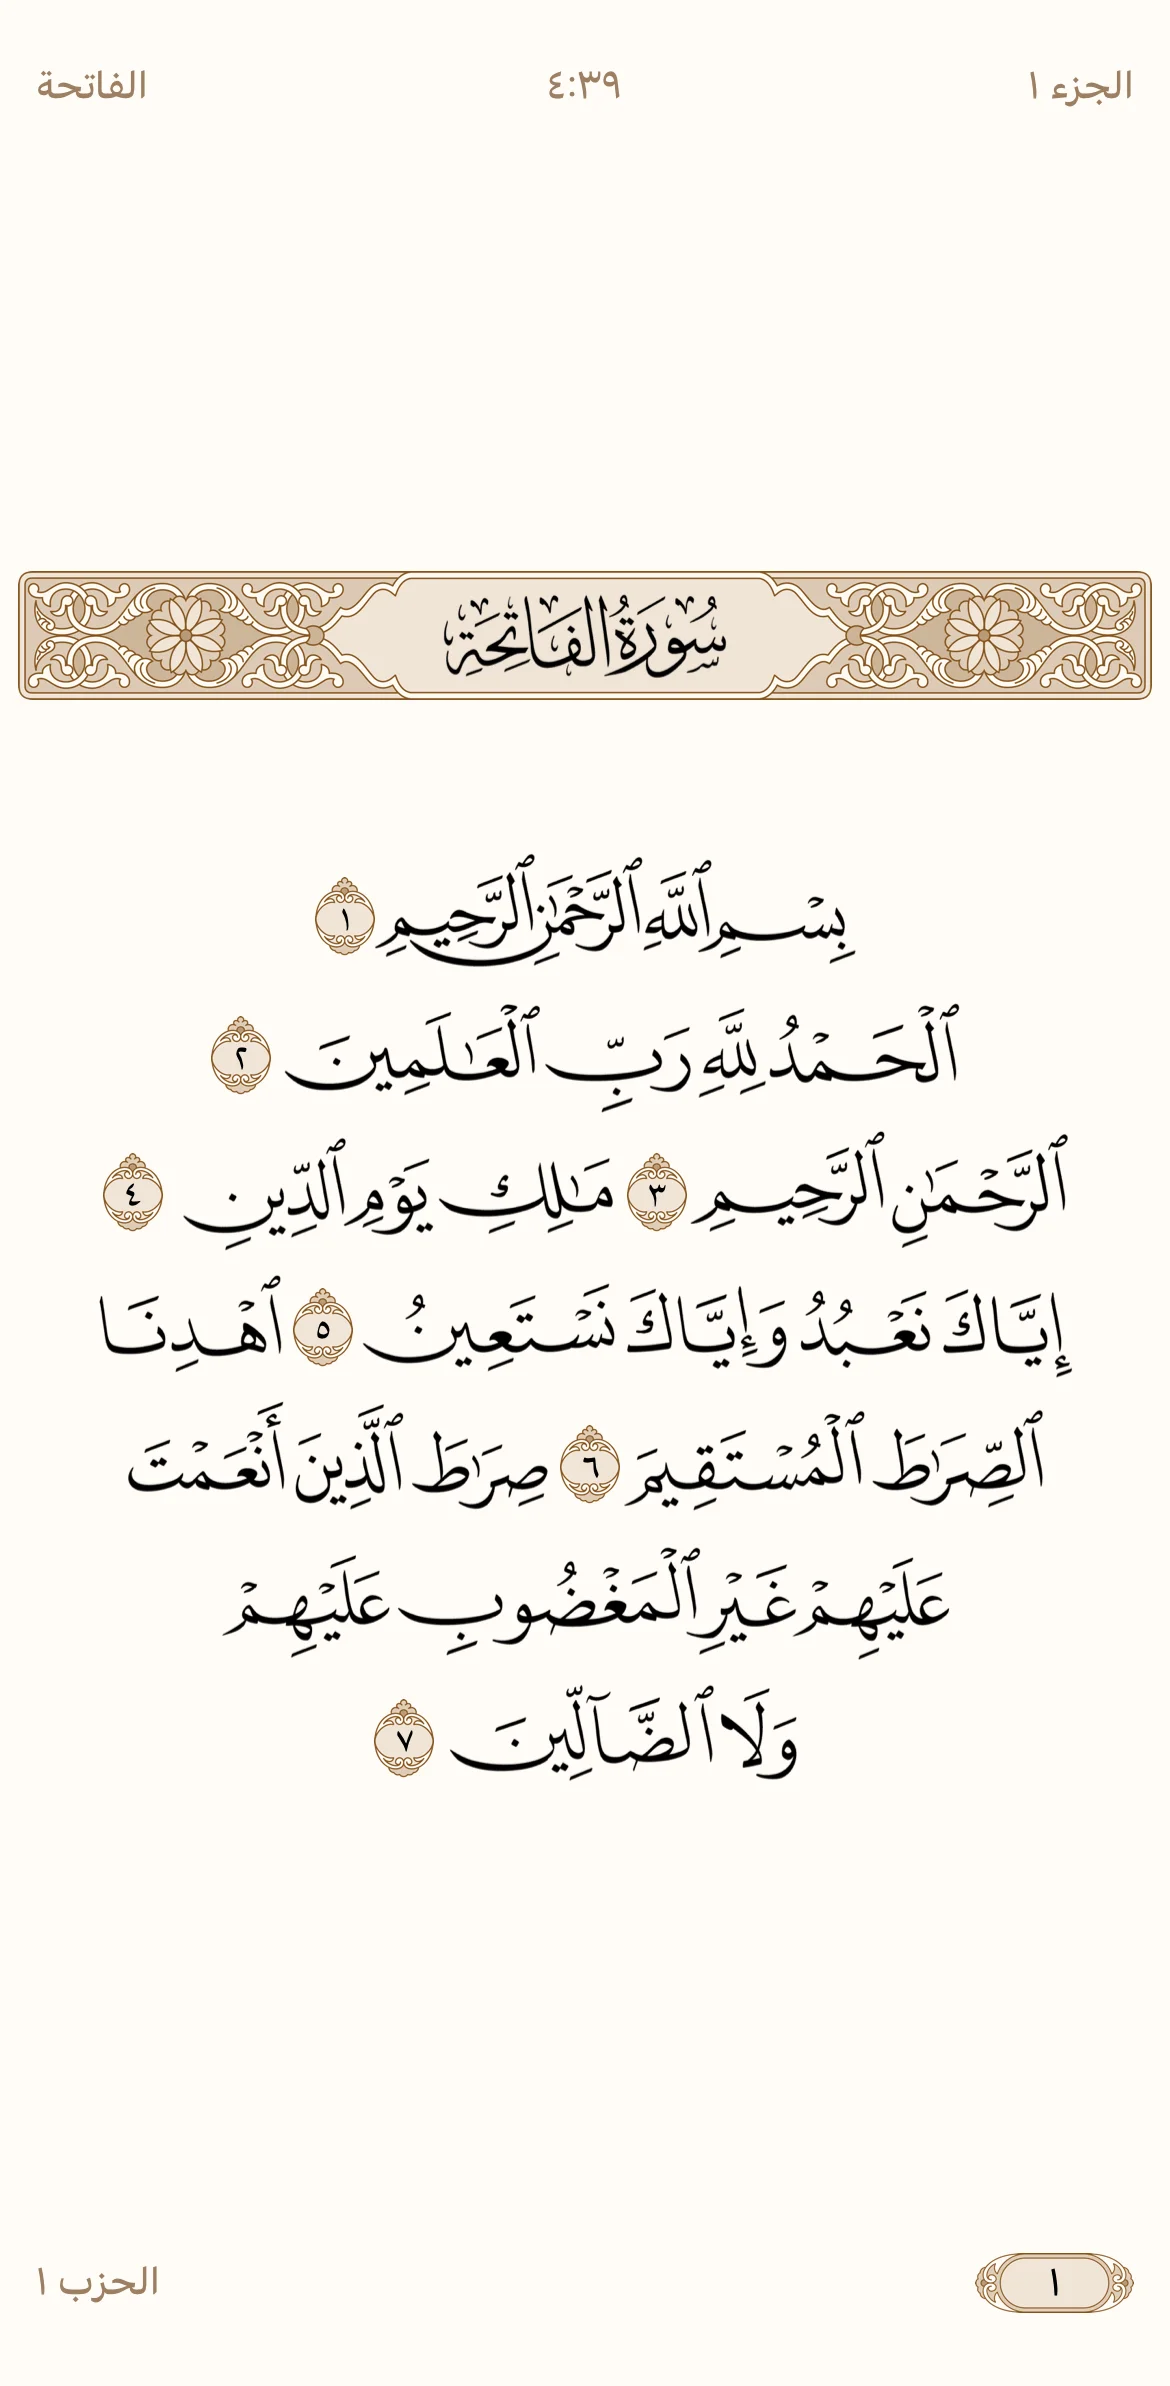 الجزء ١
٤:٣٩
الفاتحة
سُورَةُ الفَاتِحَةِ
بِسۡمِ ٱللَّهِ ٱلرَّحۡمَٰنِ ٱلرَّحِيمِ ١
ٱلۡحَمۡدُ لِلَّهِ رَبِّ ٱلۡعَٰلَمِينَ ٢
ٱلرَّحۡمَٰنِ ٱلرَّحِيمِ ٣ مَٰلِكِ يَوۡمِ ٱلدِّينِ ٤
إِيَّاكَ نَعۡبُدُ وَإِيَّاكَ نَسۡتَعِينُ ٥ ٱهۡدِنَا
ٱلصِّرَٰطَ ٱلۡمُسۡتَقِيمَ ٦ صِرَٰطَ ٱلَّذِينَ أَنۡعَمۡتَ
عَلَيۡهِمۡ غَيۡرِ ٱلۡمَغۡضُوبِ عَلَيۡهِمۡ
وَلَا ٱلضَّآلِّينَ ٧
١
الحزب ١